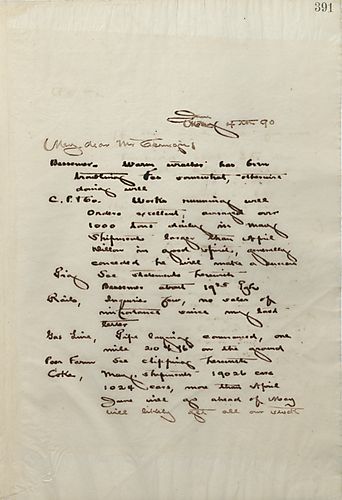 391
June 4th 90
My dear Mr
Bessemer. Warm weather has been
troubling us somewhat, otherwise
doing well
C. P. & Co. Works running well
Orders excellent, averaged over
1000 tons daily in May
Shipments larger than April
Dillon in good spirits, generally
conceded he will make a success
Pig See statements herewith
Bessemer about 19
Rails, Inquiries few, no sales of
importance since my last
letter
Gas Line, Pipe laying commenced, one
mile on the ground
Poor Farm See clipping herewith
Coke, May, shipments 19026 cars
1024 cars, more than April
June will go ahead of May
will likely all our